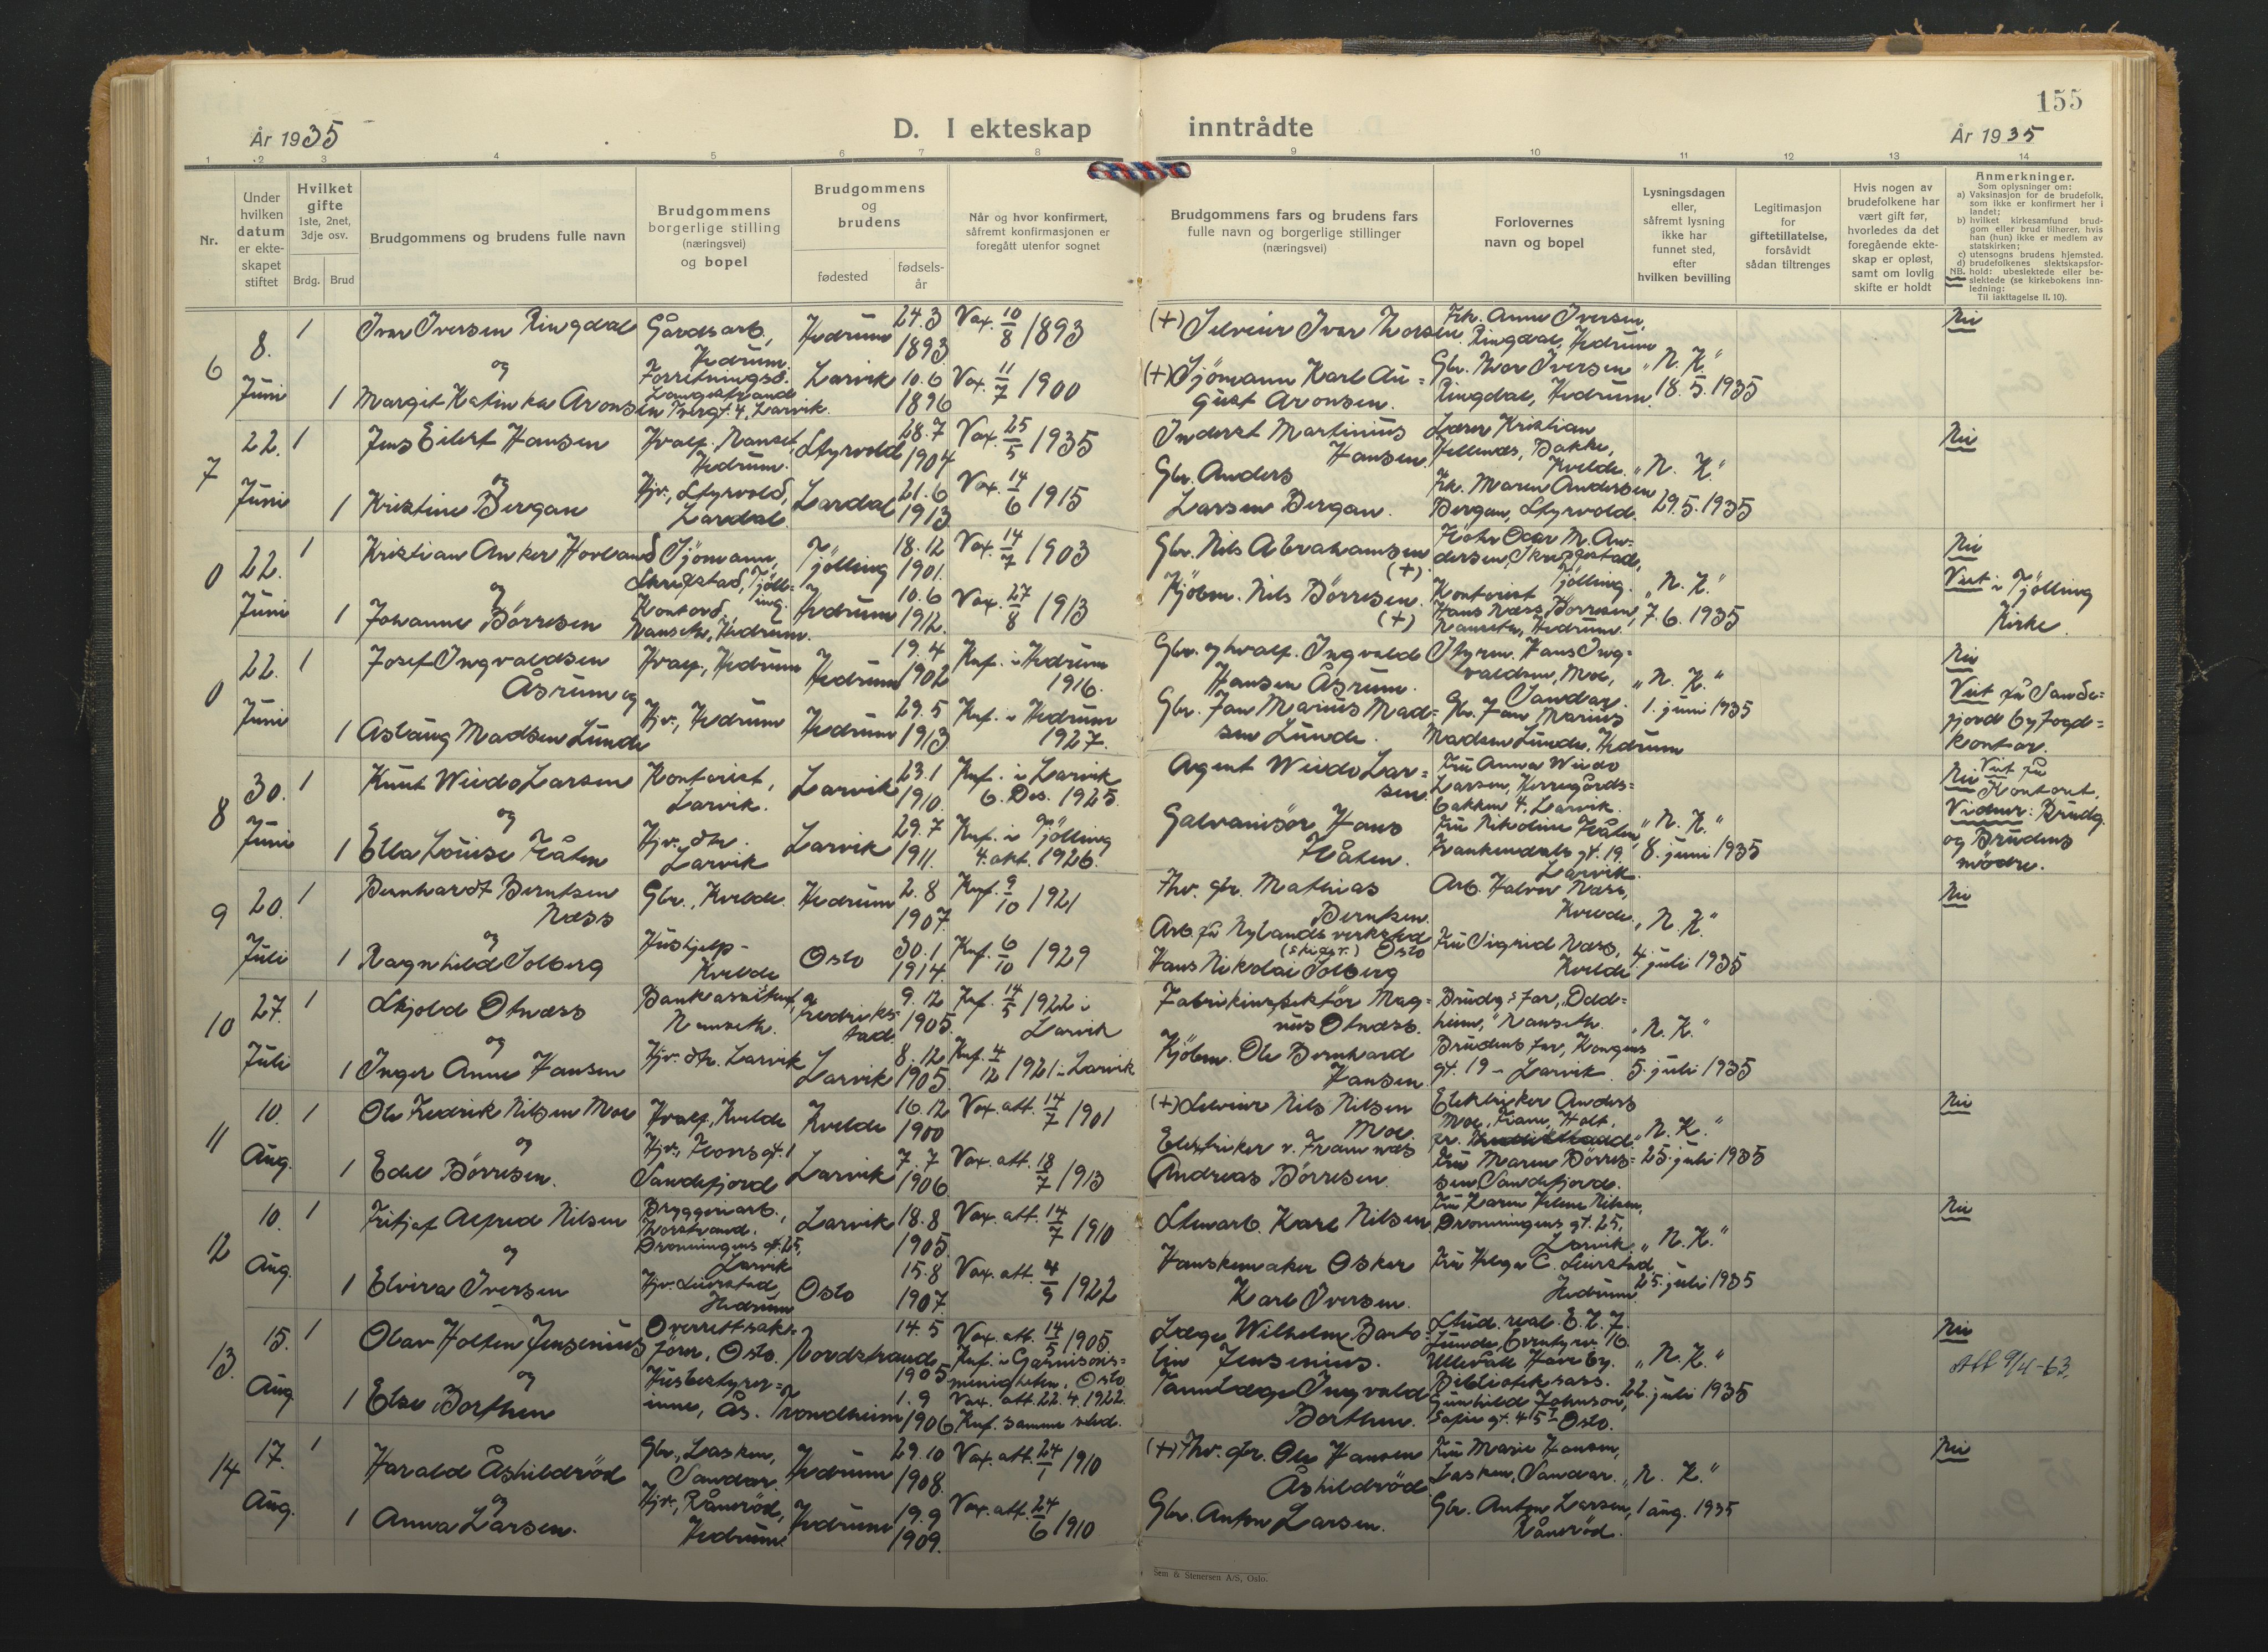 155
År 1935
D. I ekteskap inntrådte
År 1935
1 2 3 4 5 6 7 8 9 10 11 12 13 14
Nr.
Under hvilken datum er ekteskapet stiftet
Hvilket gifte 1ste, 2net, 3dje osv.
Brdg. Brud
Brudgommens og brudens fulle navn
Brudgommens borgerlige stilling (næringsvei) og bopel
Brudgommens og brudens
fødested
fødselsår
Når og hvor konfirmert, såfremt konfirmasjonen er foregått utenfor sognet
Brudgommens fars og brudens fars fulle navn og borgerlige stillinger (næringsvei)
Forlovernes navn og bopel
Lysningsdagen eller, såfremt lysning ikke har funnet sted, efter hvilken bevilling
Legitimasjon for giftetillatelse, forsåvidt sådan tiltrenges
Hvis nogen av brudefolkene har vært gift før, hvorledes da det foregående ekteskap er opløst, samt om lovlig skifte er holdt
Anmerkninger.
Som oplysninger om:
a) Vaksinasjon for de brudefolk, som ikke er konfirmert her i landet;
b) hvilket kirkesamfund brudgom eller brud tilhører, hvis han (hun) ikke er medlem av statskirken;
c) utensogns brudens hjemsted.
d) brudefolkenes slektskapsforhold: ubeslektede eller beslektede (se kirkebokens innledning:
NB.
Til iakttagelse II. 10).
6 8. Juni 1 Ivar Iversen Ringdal Gårdsarb., Hedrum Hedrum 24.3 1893 Vax. 10/8 1893 (+) Selveier Ivar Thorsen Frk. Anna Iversen, Ringdal, Hedrum Nei
og
1 Margit Katinka Aronsen Forretningsd. Langestrand Tverrgt. 4, Larvik. Larvik 10.6 1896 Vax. 11/7 1900 (+) Sjömann Karl August Aronsen. Gbr. Thor Iversen Ringdal, Hedrum "N. K." 18.5.1935
7 22. Juni 1 Jens Eilert Hansen Hvalf. Nanset, Hedrum. Styrvold 28.7 1904 Vax. 25/5 1935 Inderst Martinius Hansen. Lærer Kristian Hellenes, Bakke, Kvelde. Nei
og
1 Kristine Bergan Hjv., Styrvold, Lardal. Lardal 21.6 1913 Vax. 14/6 1915 Gbr. Anders Larsen Bergan. Frk. Maren Andersen Bergan, Styrvold. "N. K." 29.5.1935
0 22. Juni 1 Kristian Anker Hovland Sjömann, Skreppestad, Tjölling. Tjölling 18.12 1901. Vax. 14/7 1903 Gbr. Nils Abrahamsen (+) Oscar M. Andersen, Skreppestad, Tjölling. Nei
og
1 Johanne Börresen Kontord., Nanseth, Hedrum. Hedrum 10.6 1912. Vax. 27/8 1913 Kjöbm. Nils Börresen. (+) Kontorist Hans Næss Börresen, Nanseth, Hedrum. "N. K." 7.6.1935 Viet i Tjölling Kirke.
0 22. Juni 1 Josef Ingvaldsen Åsrum og Hvalf., Hedrum Hedrum 19.4 1902 Knf. i Hedrum 1916. Gbr. og hvalf. Ingvald Hansen Åsrum. Styrm. Hans Ingvaldsen, Moe, Sandar. Nei
1 Aslaug Madsen Lunde Hjv., Hedrum Hedrum 29.5 1913 Knf. i Hedrum 1927. Gbr. Jan Marius Madsen Lunde. Gbr. Jan Marius Madsen Lunde, Hedrum "N. K." 1. juni 1935 Viet på Sandefjord byfogdkontor.
8 30. Juni 1 Knut Wiedo Larsen Kontorist, Larvik. Larvik 23.1 1910. Knf. i Larvik 6. Des. 1925. Agent Wiedo Larsen. Fru Anna Wiedo Larsen, Herregårdsbakken 4, Larvik. Nei
og
1 Ella Louise Håten Hjv. dtr. Larvik Larvik 29.7 1911. Knf. i Tjölling 4. okt. 1926. Galvanisör Hans Håten. Fru Nikoline Håten, Frankendalsgt. 19, Larvik. "N. K." 8. juni 1935 Viet på Kontoret. Vidner: Brudg. og Brudens mödre.
9 20. Juli 1 Bernhardt Berntsen Næss Gbr., Kvelde. Hedrum 2.8 1907. Knf. 9/10 1921 Fhv. gbr. Mathias Berntsen. Arb. Halvor Næss, Kvelde. Nei
og
1 Ragnhild Solberg Hushjelp - Kvelde Oslo 30.1 1914. Knf. 6/10 1929 Arb. på Nylands verksted Oslo Hans Nikolai Solberg Fru Sigrid Næss, Kvelde "N. K." 4. juli 1935
10 27. Juli 1 Skjold Olnæss Bankassistent, Nanseth. Fredrikstad. 9.12 1905. Knf. 14/5 1922 i Larvik Fabrikinspektör Magnus Olnæss. Brudg's far, "Oddheim," Nanseth.
og
1 Inger Anne Hansen Hjv. dtr. Larvik Larvik 8.12 1905. Knf. 4/12 1921 i Larvik Kjöbm. Ole Bernhard Hansen. Brudens far, Kongensgt. 19 - Larvik. "N. K." 5. juli 1935
11 10. Aug. 1 Ole Fredrik Nilsen Moe Hvalf., Kvelde Kvelde 16.12 1900 Vax. att. 14/7 1901 (+) Selveier Nils Nilsen Moe. Elektriker Anders Moe, Holt, Nei
og
1 Edel Börresen. Hjv., Sandefjord Larvik 7.7 1906 Vax. att. 18/7 1913 Elektriker v. Framnæs Andreas Börresen. Fru Maren Börresen, Sandefjord. "N. K." 25. juli 1935
12 10. Aug. 1 Fritjof Alfred Nilsen Bryggeriarb., Torstrand. Dronningens gt. 25, Larvik Larvik 18.8 1905. Vax. att. 14/7 1910 Stenarb. Karl Nilsen Fru Karen Helene Nilsen, Dronningens gt. 25, Larvik. Nei
og
1 Elvira Iversen Hjv. Leirstad, Hedrum Oslo 15.8 1907. Vax. att. 4/9 1922 Hanskemaker Oskar Karl Iversen. Fru Helga C. Leirstad, Hedrum. "N. K." 25. juli 1935
13. 15. Aug. 1 Olav Holten Jensenius Overrettsakförer, Oslo. Nordstrand 14.5 1905 Vax. att. 14/5 1905. Knf. i Garnisonsmenigheten, Oslo Læge Wilhelm Bartolin Jensenius. Stud. real. E. H. J. Lunde, Eventyrv. 16. Ullevål Haveby. Nei
og
1 Else Borthen Husbestyrerinne, Ås. Trondheim 1.9 1906 Vax. att. 22.4.1922. Knf. samme sted. Tannlæge Ingvald Borthen. Biblioteksass. Gunhild Johnson, Sofies gt. 45 - Oslo. "N. K." 22. juli 1935 Att 9/4-63.
14 17. Aug. 1 Harald Åshildröd Gbr., Lasken, Sandar. Hedrum 29.10 1908. Vax. att. 24/1 1910 (+) Fhv. gbr. Ole Hansen Åshildröd Fru Marie Hansen, Lasken, Sandar. Nei
og
1 Anna Larsen. Hjv., Råneröd, Hedrum. Hedrum 19.9 1909. Vax. att. 24/6 1910 Gbr. Anton Larsen. Gbr. Anton Larsen, Råneröd. "N. K." 1 aug. 1935
Sem & Stenersen A/S, Oslo.